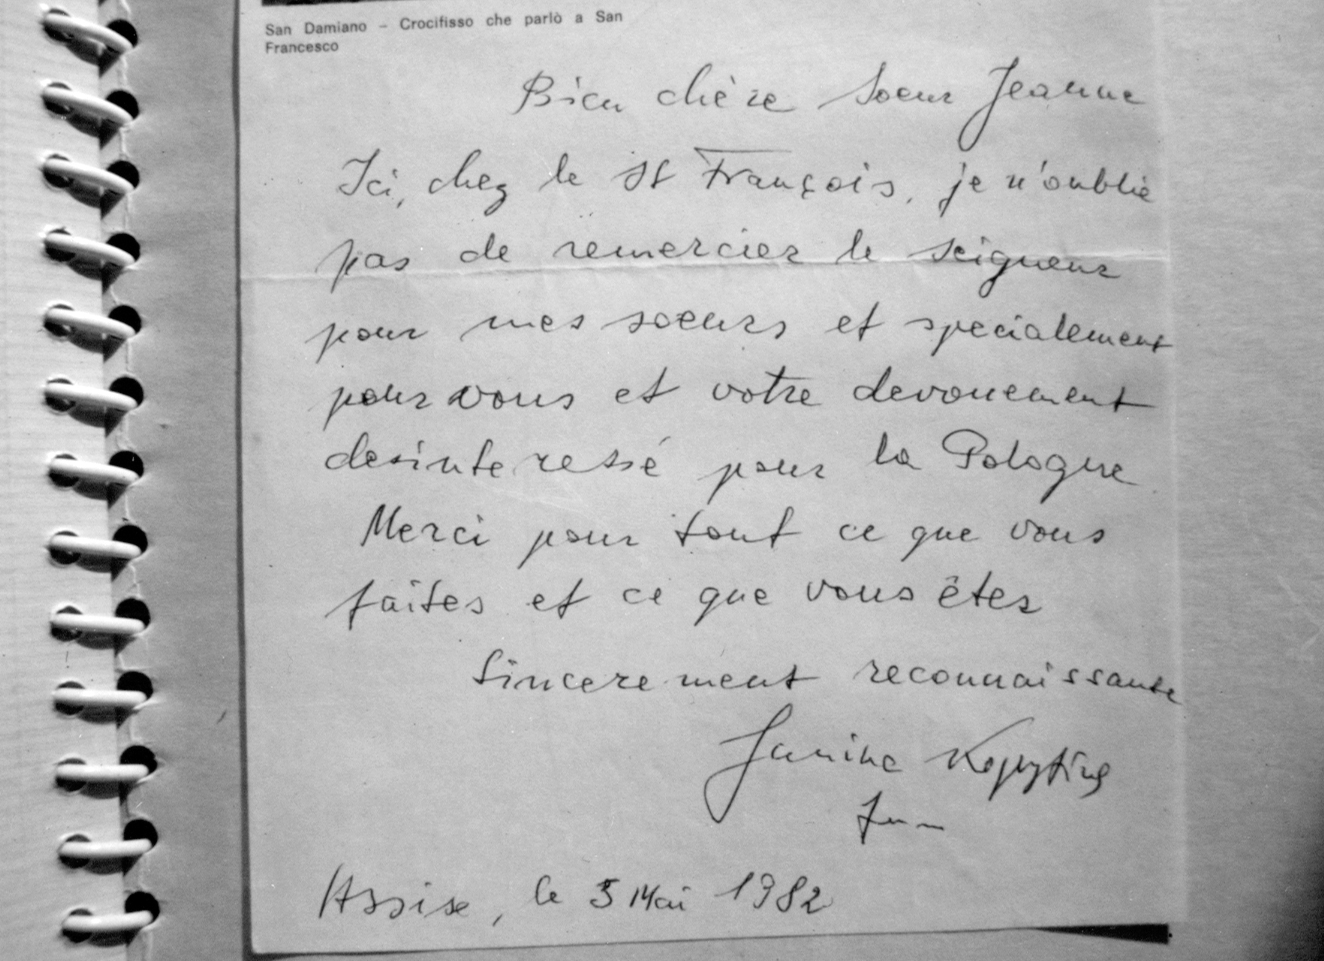 San Damiano – Crocifisso che parlò a San
Francesco
Bien chère Soeur Jeanne
Ici, chez le St François, je n'oublie
pas de remercier le seigneur
pour mes soeurs et specialement
pour vous et votre devouement
desinteressé pour la Pologne
Merci pour tout ce que vous
faites et ce que vous êtes
Sincerement reconnaissante
Janina
Assise, le 5 Mai 1982